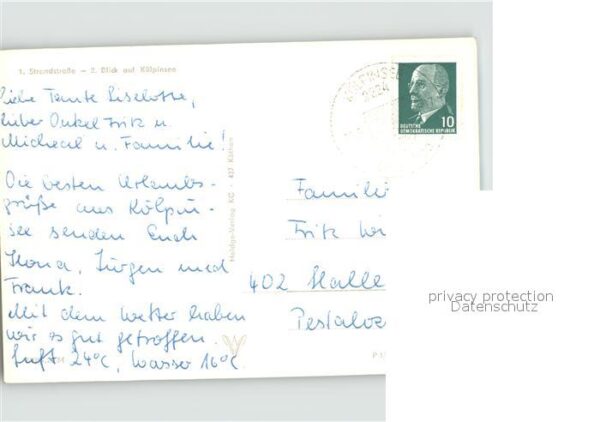 1. Strandstraße – 2. Blick auf Kölpinsee
Liebe Tante Liselotte,
lieber Onkel Fritz u.
Micheal u. Familie!
Die besten Urlaubs-
grüße aus Kölpin-
see senden Euch
Ilona, Jürgen und
Frank.
Mit dem Wetter haben
wir es gut getroffen.
Luft 24°C, Wasser 16°C.
Heldge-Verlag KG · 437 Köthen
2224
10
DEUTSCHE
DEMOKRATISCHE REPUBLIK
Famili
Fritz
402 Halle
Pestaloz
privacy protection
Datenschutz